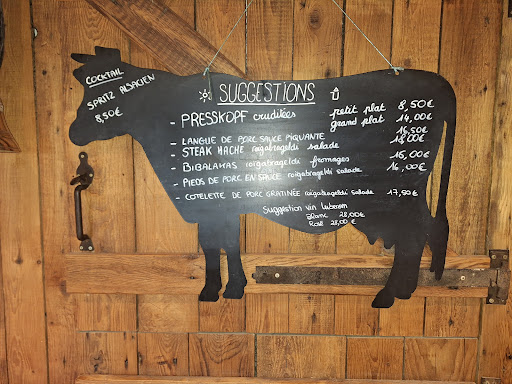 COCKTAIL
SPRITZ ALSACIEN
8,50€
SUGGESTIONS
- PRESSKOPF crudités petit plat 8,50€
grand plat 14,00€
- LANGUE DE PORC SAUCE PIQUANTE 16,50€
- STEAK HACHÉ roigabrageldi salade 18,00€
- BIBALAKAS roigabrageldi fromages 16,00€
- PIEDS DE PORC EN SAUCE roigabrageldi salade 16,00€
- COTELETTE DE PORC GRATINÉE roigabrageldi salade 17,50€
Suggestion vin Luberon
Blanc 28,00€
Rosé 28,00€